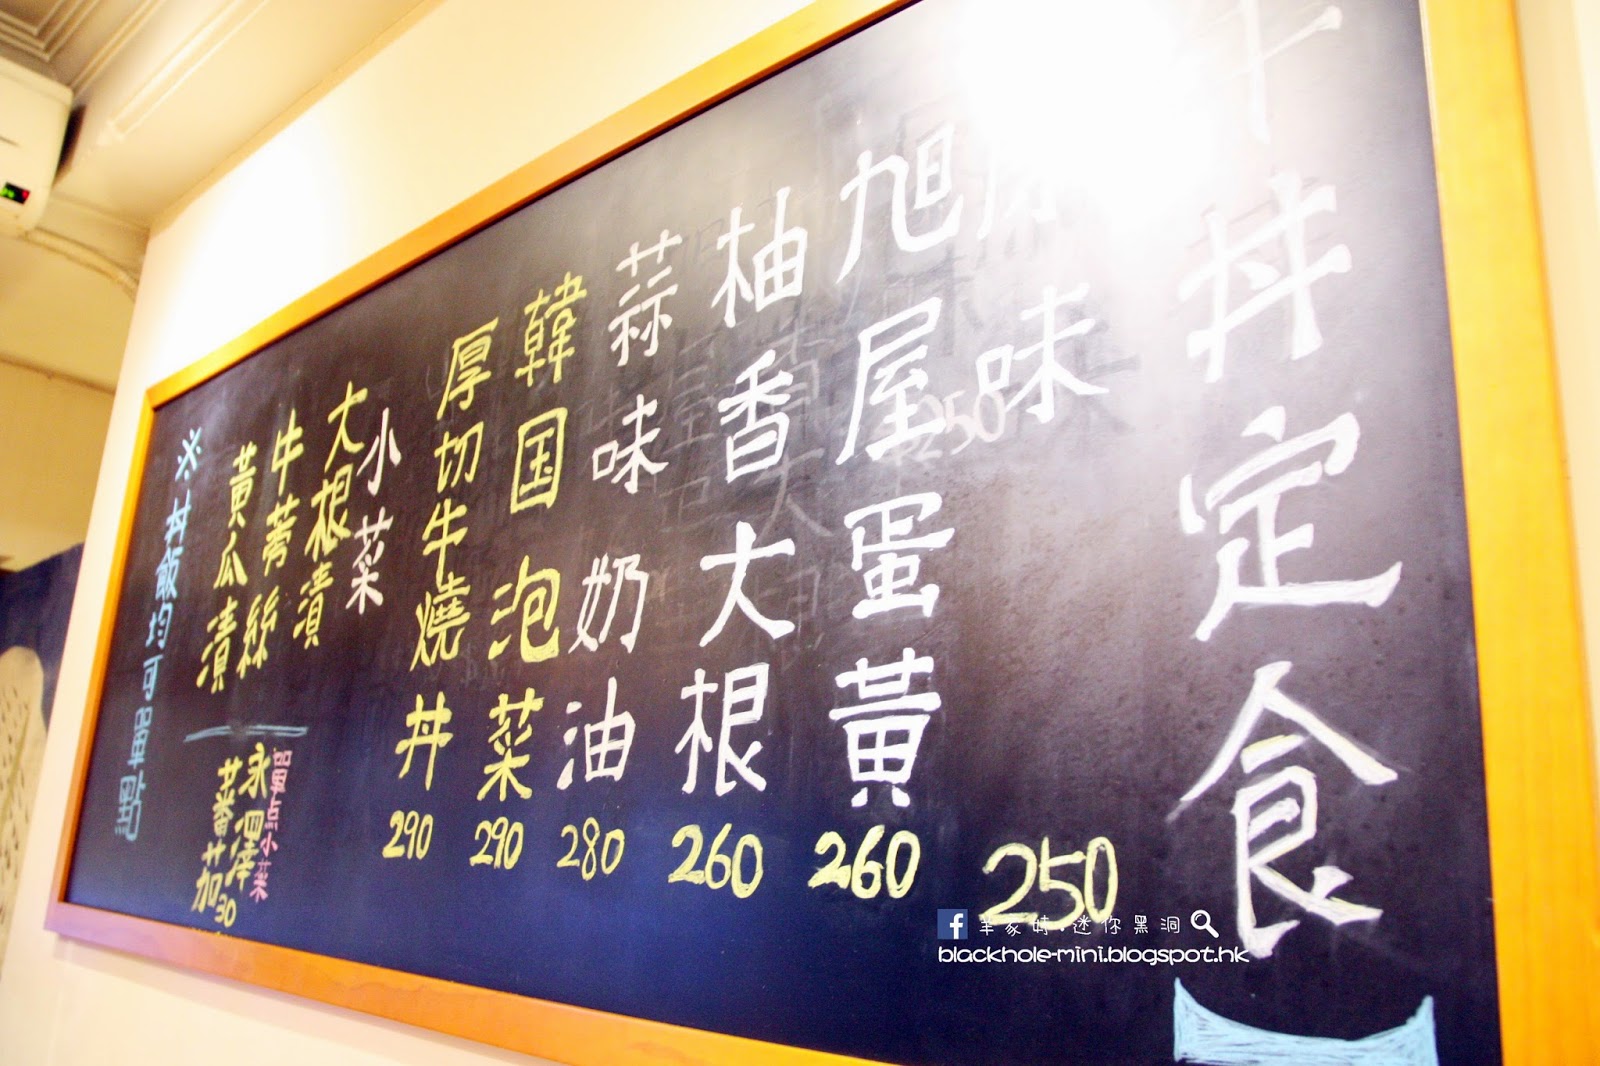 牛丼定食
原味 250
旭屋蛋黃 260
柚香大根 260
蒜味奶油 280
韓国泡菜 290
厚切牛燒丼 290
小菜
大根漬
牛蒡絲
黃瓜漬
小菜
永澤
蕃茄 30
※丼飯均可單點
250
blackhole-mini.blogspot.hk